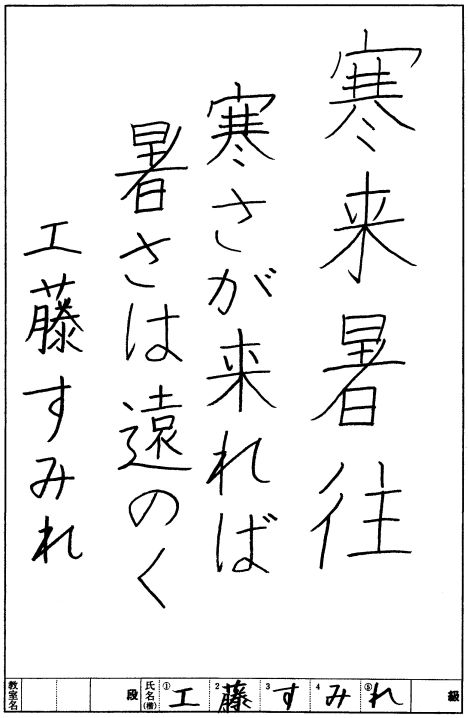 寒来暑往
寒さが来れば
暑さは遠のく
工藤すみれ
教室名 段 氏名(楷) ①工 2藤 3す 4み ⑤れ 級